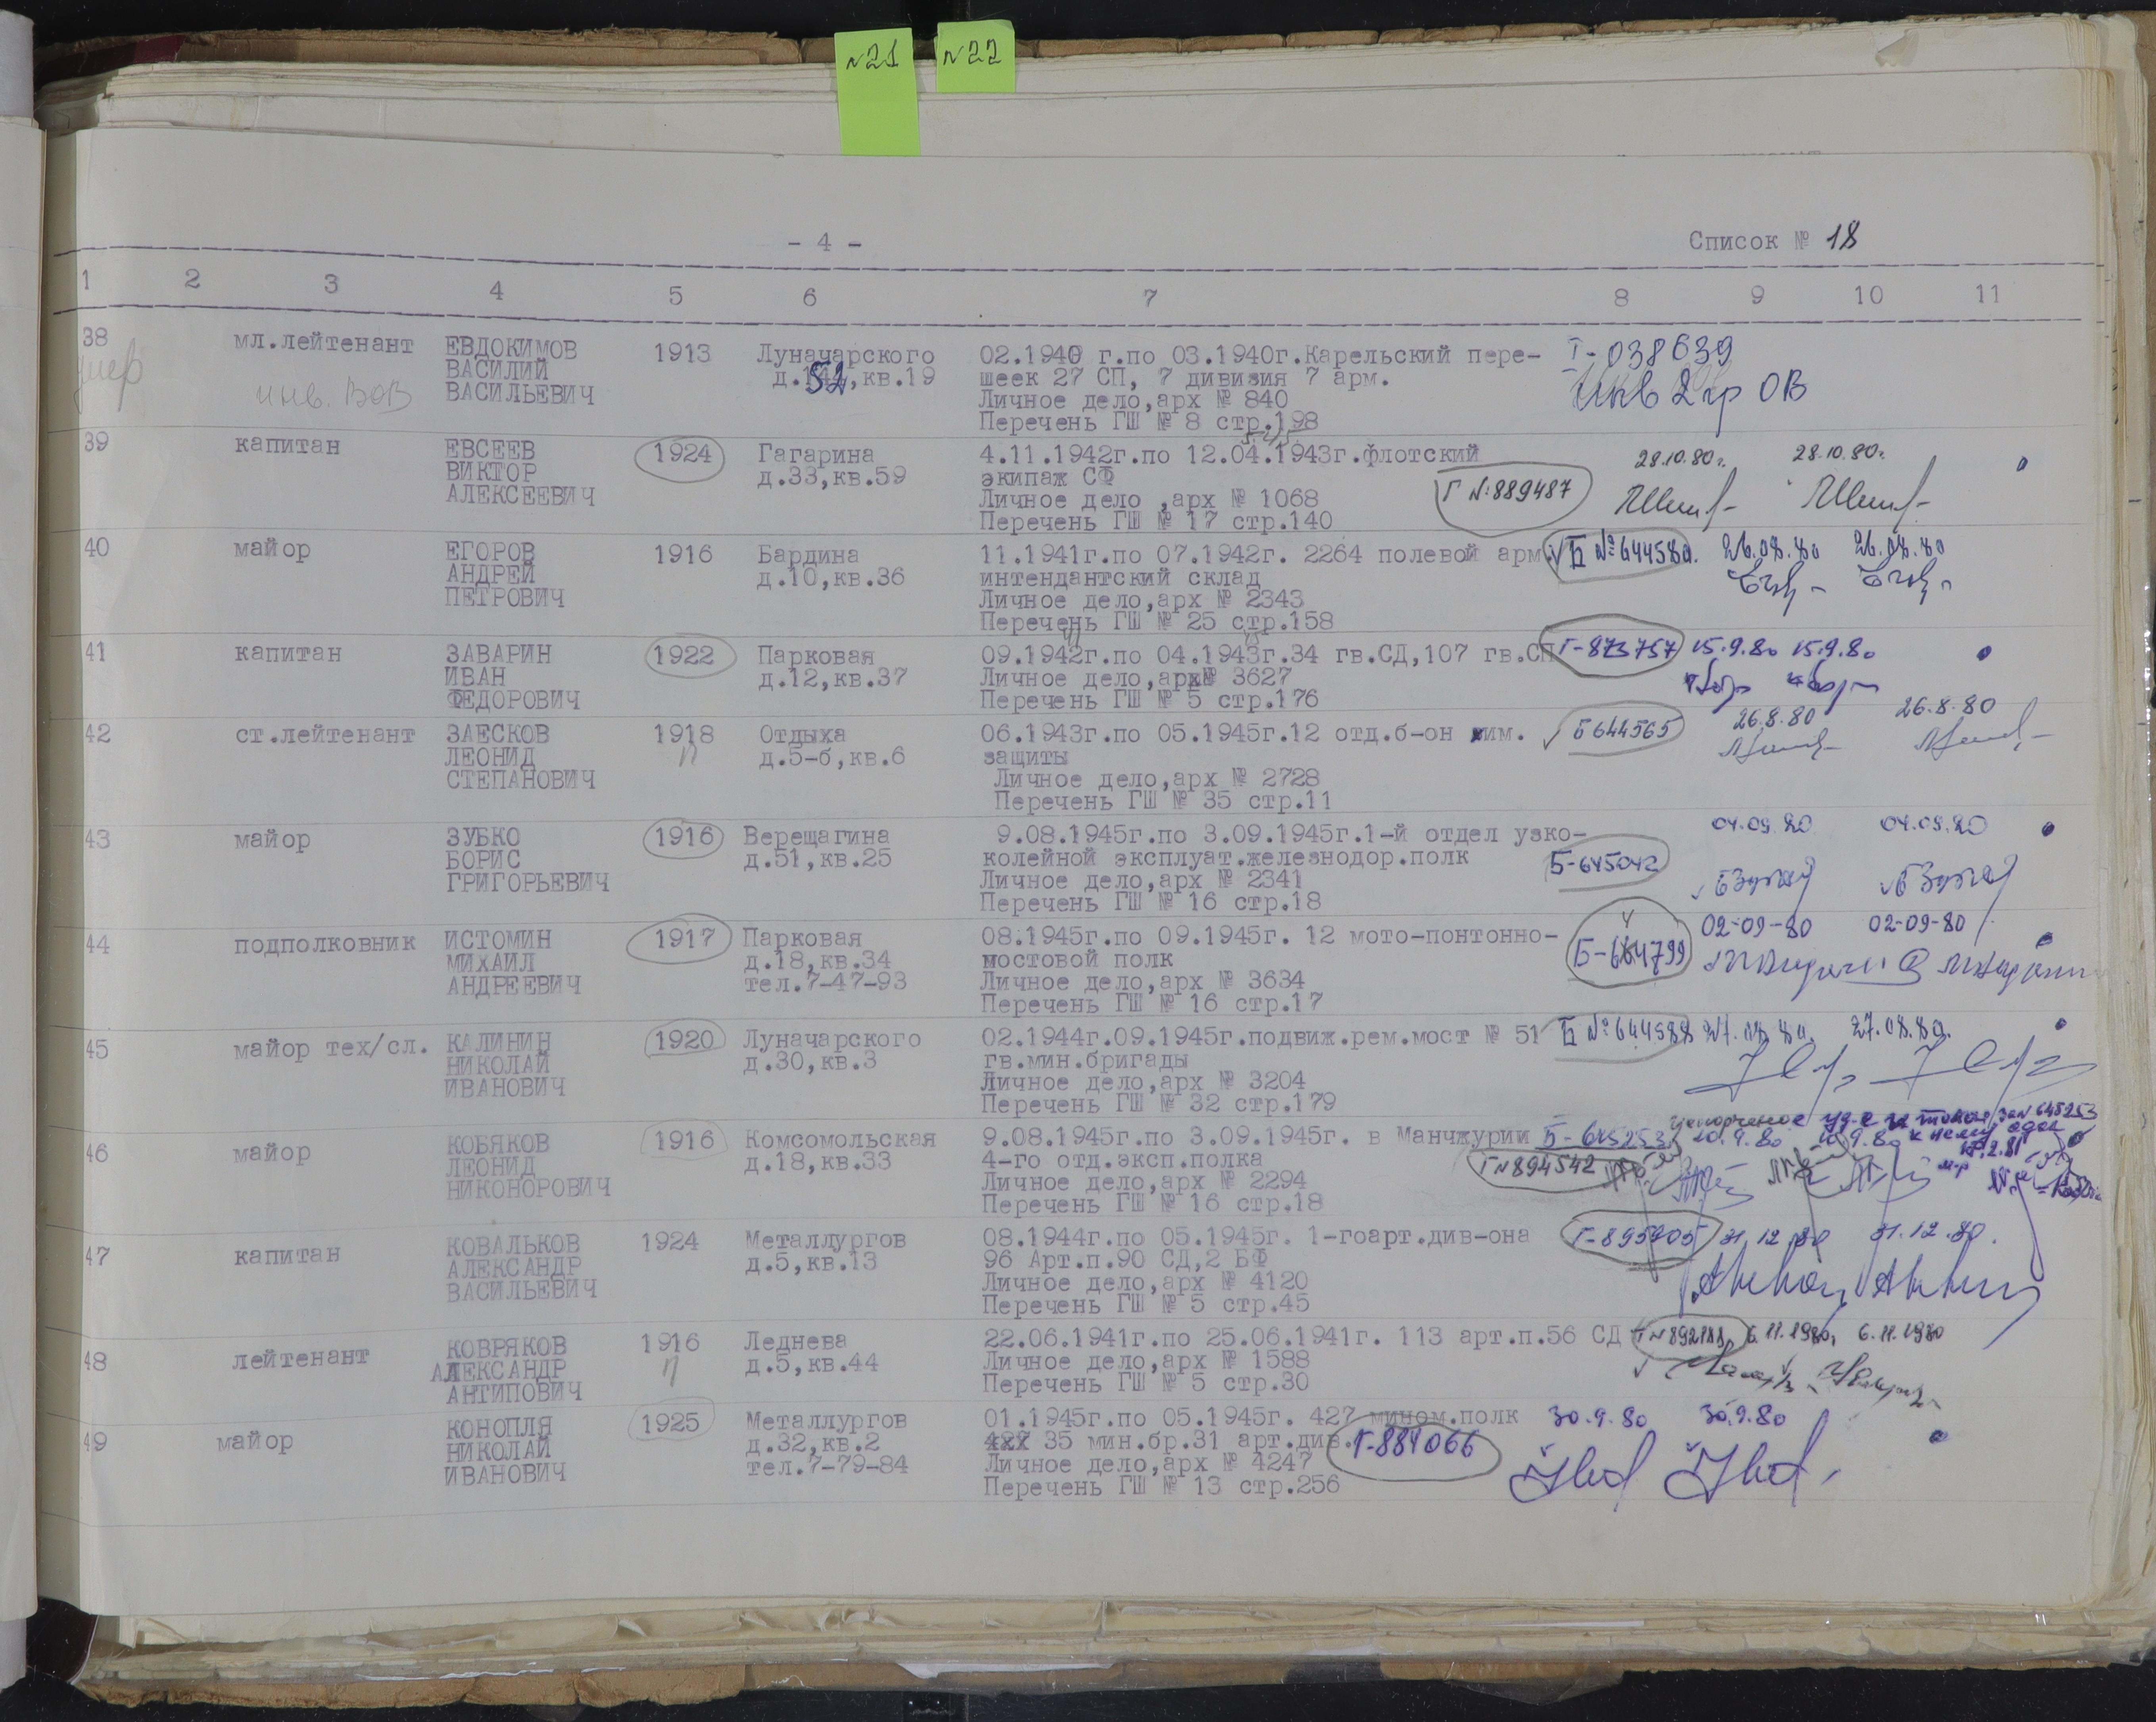 №21
№22
- 4 -
Список № 18
1 2 3 4 5 6 7 8 9 10 11
38 мл.лейтенант ЕВДОКИМОВ 1913 Луначарского 02.1940 г.по 03.1940г.Карельский пере- I-038639
умер инв. ВОВ ВАСИЛИЙ д. 52,кв.19 шеек 27 СП, 7 дивизия 7 арм. Инв 2 гр ОВ
ВАСИЛЬЕВИЧ Личное дело,арх № 840
Перечень ГШ № 8 стр.198
39 капитан ЕВСЕЕВ 1924 Гагарина 4.11.1942г.по 12.04.1943г.флотский 28.10.80г. 28.10.80г.
ВИКТОР д.33,кв.59 экипаж СФ Г №:889487
АЛЕКСЕЕВИЧ Личное дело ,арх № 1068
Перечень ГШ № 17 стр.140
40 майор ЕГОРОВ 1916 Бардина 11.1941г.по 07.1942г. 2264 полевой арм. Б №:644580. 26.08.80 26.08.80
АНДРЕЙ д.10,кв.36 интендантский склад
ПЕТРОВИЧ Личное дело,арх № 2343
Перечень ГШ № 25 стр.158
41 капитан ЗАВАРИН 1922 Парковая 09.1942г.по 04.1943г.34 гв.СД,107 гв.СП Г-873757 15.9.80 15.9.80
ИВАН д.12,кв.37 Личное дело,арх№ 3627
ФЕДОРОВИЧ Перечень ГШ № 5 стр.176
42 ст.лейтенант ЗАЕСКОВ 1918 Отдыха 06.1943г.по 05.1945г.12 отд.б-он хим. Б 644565 26.8.80 26.8.80
ЛЕОНИД п д.5-б,кв.6 защиты
СТЕПАНОВИЧ Личное дело,арх № 2728
Перечень ГШ № 35 стр.11
43 майор ЗУБКО 1916 Верещагина 9.08.1945г.по 3.09.1945г.1-й отдел узко- 04.09.80 04.09.80
БОРИС д.51,кв.25 колейной эксплуат.железнодор.полк Б-645042
ГРИГОРЬЕВИЧ Личное дело,арх № 2341
Перечень ГШ № 16 стр.18
44 подполковник ИСТОМИН 1917 Парковая 08.1945г.по 09.1945г. 12 мото-понтонно- Б-644799 02-09-80 02-09-80
МИХАИЛ д.18,кв.34 мостовой полк
АНДРЕЕВИЧ тел.7-47-93 Личное дело,арх № 3634
Перечень ГШ № 16 стр.17
45 майор тех/сл. КАЛИНИН 1920 Луначарского 02.1944г.09.1945г.подвиж.рем.мост № 51 Б №:644588 27.08.80. 27.08.80.
НИКОЛАЙ д.30,кв.3 гв.мин.бригады
ИВАНОВИЧ Личное дело,арх № 3204
Перечень ГШ № 32 стр.179
46 майор КОБЯКОВ 1916 Комсомольская 9.08.1945г.по 3.09.1945г. в Манчжурии Б-645253
ЛЕОНИД д.18,кв.33 4-го отд.эксп.полка Г№894542
НИКОНОРОВИЧ Личное дело,арх № 2294
Перечень ГШ № 16 стр.18
47 капитан КОВАЛЬКОВ 1924 Металлургов 08.1944г.по 05.1945г. 1-гоарт.див-она Г-895905 31.12.80 31.12.80.
АЛЕКСАНДР д.5,кв.13 96 Арт.п.90 СД,2 БФ
ВАСИЛЬЕВИЧ Личное дело,арх № 4120
Перечень ГШ № 5 стр.45
48 лейтенант КОВРЯКОВ 1916 Леднева 22.06.1941г.по 25.06.1941г. 113 арт.п.56 СД 6.11.1980, 6.11.1980
АЛЕКСАНДР п д.5,кв.44 Личное дело,арх № 1588
АНТИПОВИЧ Перечень ГШ № 5 стр.30
49 майор КОНОПЛЯ 1925 Металлургов 01.1945г.по 05.1945г. 427 мином.полк 30.9.80 30.9.80
НИКОЛАЙ д.32,кв.2 35 мин.бр.31 арт.див. Г-884066
ИВАНОВИЧ тел.7-79-84 Личное дело,арх № 4247
Перечень ГШ № 13 стр.256